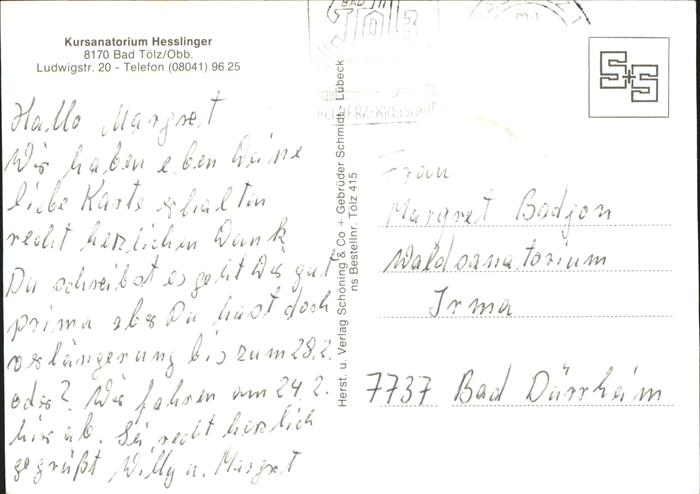 Kursanatorium Hesslinger
8170 Bad Tölz/Obb.
Ludwigstr. 20 - Telefon (08041) 96 25
Hallo Margret
Wir haben eben Deine
liebe Karte erhalten
recht herzlichen Dank
Du schreibst es geht Dir gut
prima aber Du hast doch
verlängerung bis zum 28.2.
oder? Wir fahren am 24.2.
hir ab. Sei recht herzlich
gegrüßt Willy u. Margret
Herst. u. Verlag Schöning & Co + Gebrüder Schmidt, Lübeck
ns Bestellnr. Tölz 415
BAD
Tölz
S+S
Frau
Margret Badjon
Waldsanatorium
Irma
7737 Bad Dürrheim